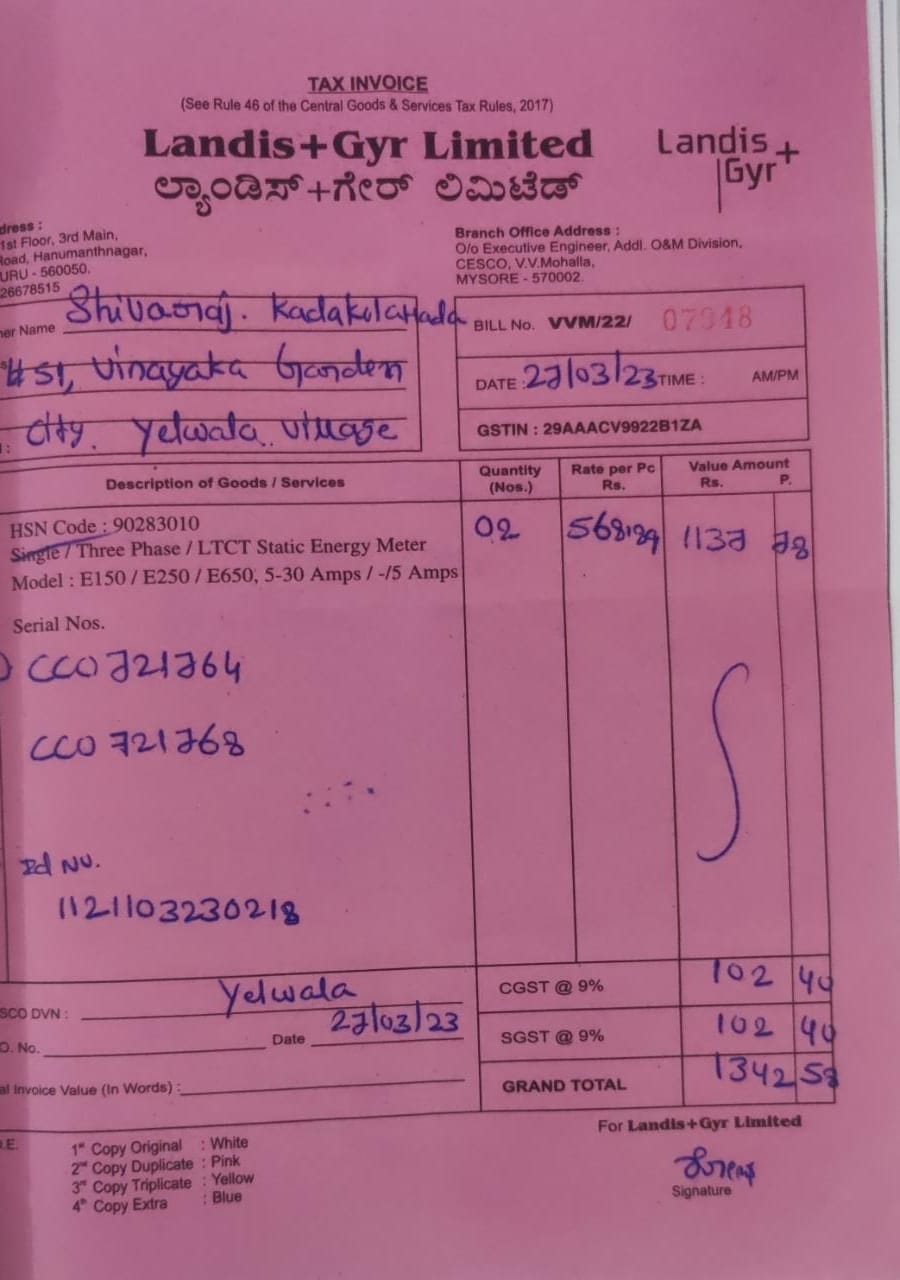 TAX INVOICE
(See Rule 46 of the Central Goods & Services Tax Rules, 2017)
Landis+Gyr Limited
Landis+
Gyr
ಲ್ಯಾಂಡಿಸ್+ಗೇರ್ ಲಿಮಿಟೆಡ್
dress :
1st Floor, 3rd Main,
oad, Hanumanthnagar,
URU - 560050.
26678515
Branch Office Address :
O/o Executive Engineer, Addl. O&M Division,
CESCO, V.V.Mohalla,
MYSORE - 570002.
er Name Shivaraj. Kadakolahada
# 51, Vinayaka Garden
City. Yelwala Village
BILL No. VVM/22/ 07948
DATE : 27/03/23 TIME : AM/PM
GSTIN : 29AAACV9922B1ZA
Description of Goods / Services Quantity (Nos.) Rate per Pc Rs. Value Amount Rs. P.
HSN Code : 90283010 02 568.89 1137 78
Single / Three Phase / LTCT Static Energy Meter
Model : E150 / E250 / E650, 5-30 Amps / -/5 Amps
Serial Nos.
CCO 721764
CCO 721768
Id No.
1121103230218
SCO DVN : Yelwala
O. No. Date 27/03/23
al Invoice Value (In Words) :
CGST @ 9% 102 40
SGST @ 9% 102 40
GRAND TOTAL 1342 58
For Landis+Gyr Limited
O.E.
1st Copy Original : White
2nd Copy Duplicate : Pink
3rd Copy Triplicate : Yellow
4th Copy Extra : Blue
Signature